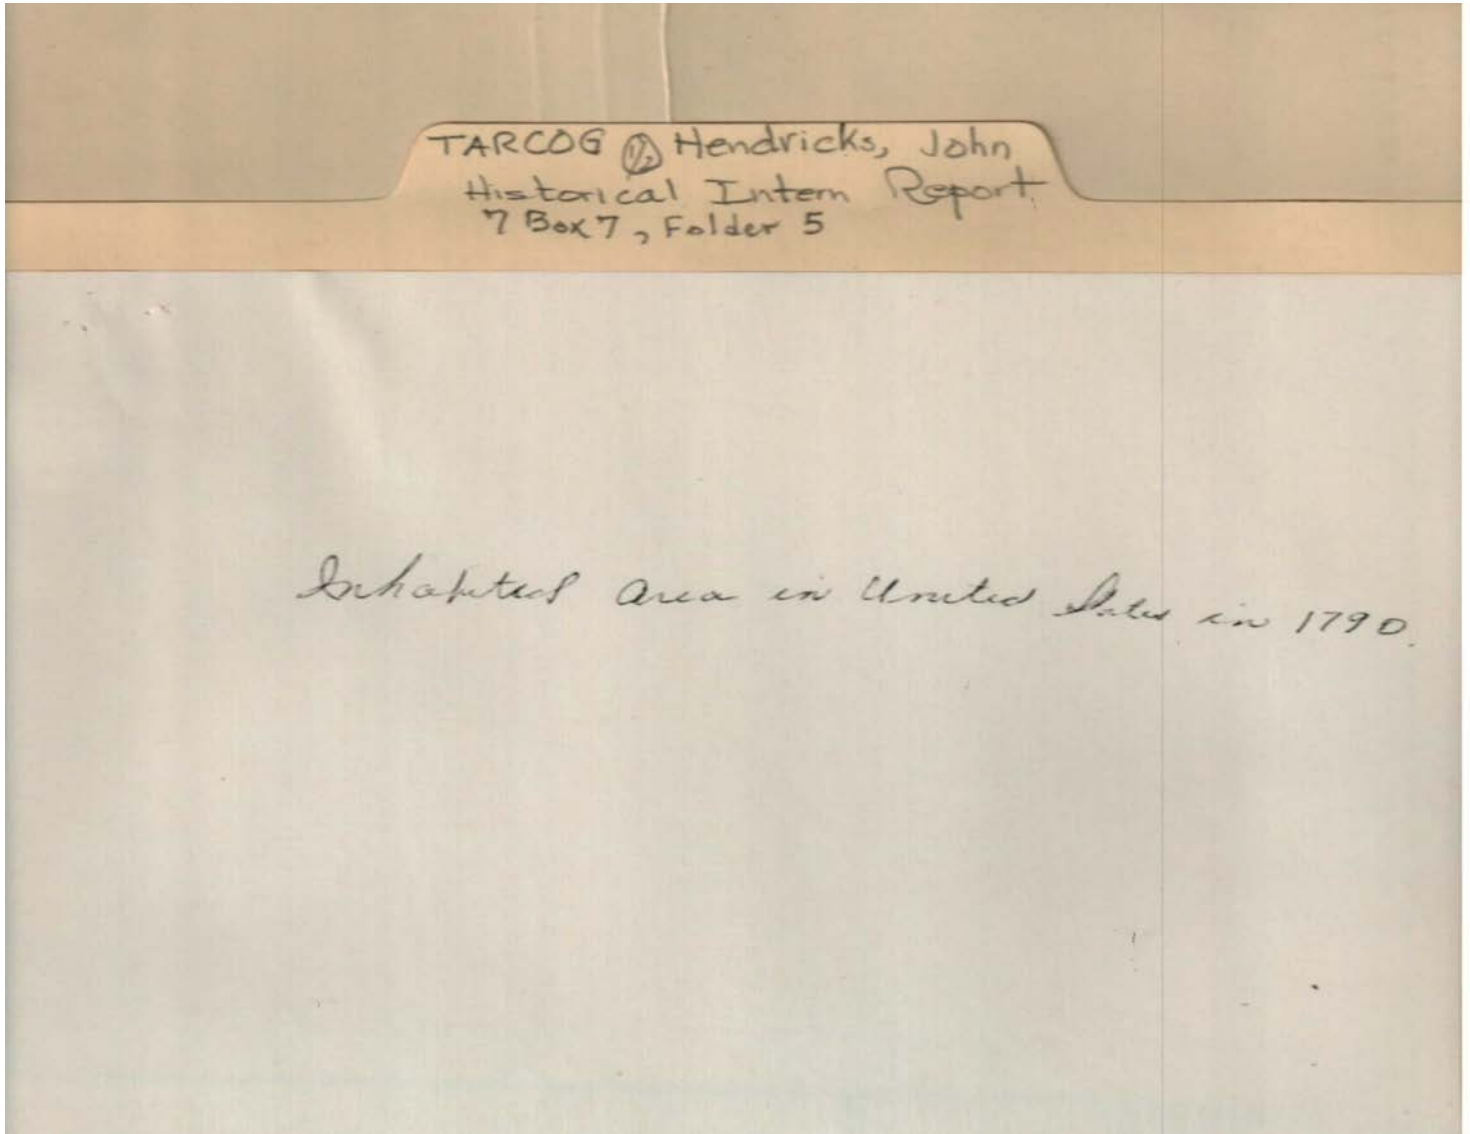 TARCOG 1/2 Hendricks, John
Historical Intern Report
7 Box 7, Folder 5
Inhabited area in United States in 1790.